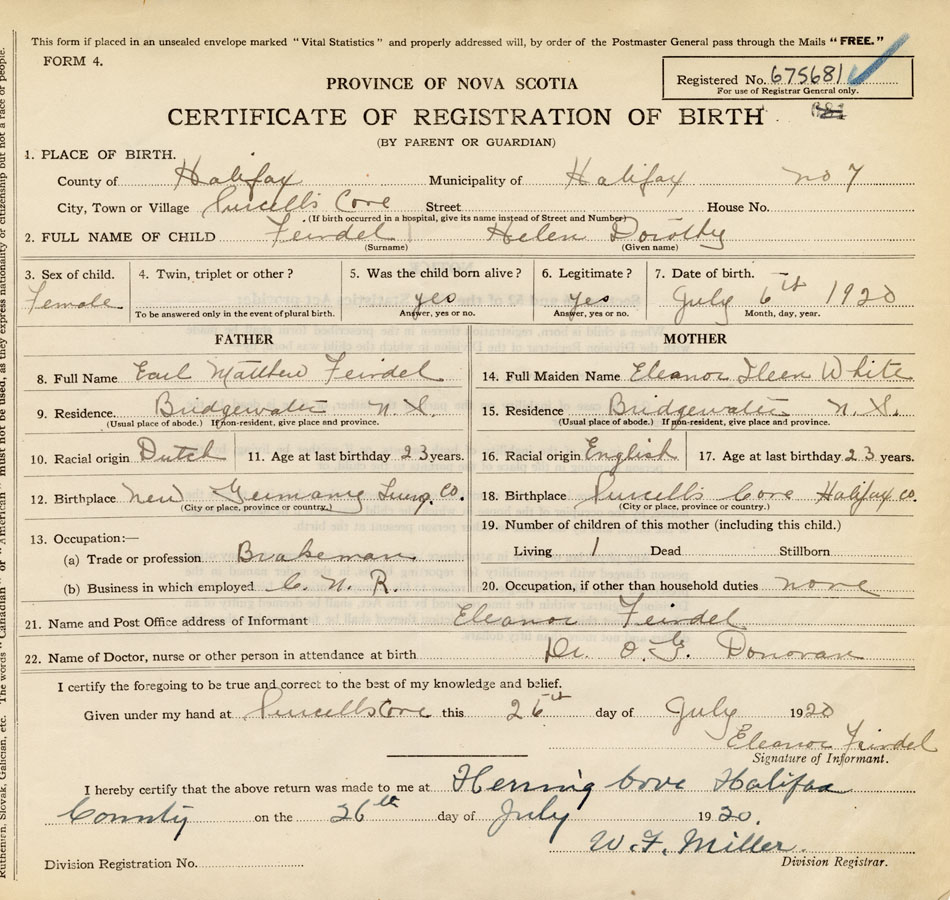 This form if placed in an unsealed envelope marked "Vital Statistics" and properly addressed will, by order of the Postmaster General pass through the Mails "FREE."
FORM 4.
Registered No. 675681
For use of Registrar General only.
PROVINCE OF NOVA SCOTIA
CERTIFICATE OF REGISTRATION OF BIRTH
(BY PARENT OR GUARDIAN)
1. PLACE OF BIRTH.
County of Halifax Municipality of Halifax no 7
City, Town or Village Purcells Cove Street House No.
(If birth occurred in a hospital, give its name instead of Street and Number)
2. FULL NAME OF CHILD Feindel Helen Dorothy
(Surname) (Given name)
3. Sex of child. 4. Twin, triplet or other? 5. Was the child born alive? 6. Legitimate? 7. Date of birth.
Female yes yes July 6th 1920
To be answered only in the event of plural birth. Answer, yes or no. Answer, yes or no. Month, day, year.
FATHER MOTHER
8. Full Name Earl Matthew Feindel 14. Full Maiden Name Eleanor Ileen White
9. Residence. Bridgewater N.S. 15. Residence Bridgewater N.S.
(Usual place of abode.) If non-resident, give place and province. (Usual place of abode.) If non-resident, give place and province.
10. Racial origin Dutch 11. Age at last birthday 23 years. 16. Racial origin English 17. Age at last birthday 23 years.
12. Birthplace New Germany Lung. Co. 18. Birthplace Purcells Cove Halifax co.
(City or place, province or country.) (City or place, province or country.)
13. Occupation:— 19. Number of children of this mother (including this child.)
(a) Trade or profession Brakeman Living 1 Dead Stillborn
(b) Business in which employed C. N. R. 20. Occupation, if other than household duties none
21. Name and Post Office address of Informant Eleanor Feindel
22. Name of Doctor, nurse or other person in attendance at birth Dr. O. G. Donovan
I certify the foregoing to be true and correct to the best of my knowledge and belief.
Given under my hand at Purcells Cove this 26th day of July 1920
Eleanor Feindel
Signature of Informant.
I hereby certify that the above return was made to me at Herring Cove Halifax
County on the 26th day of July 1920.
W. F. Miller.
Division Registration No. Division Registrar.
Ruthenien, Slovak, Galician, etc. The words "Canadian" or "American" must not be used, as they express nationality or citizenship but not a race or people.